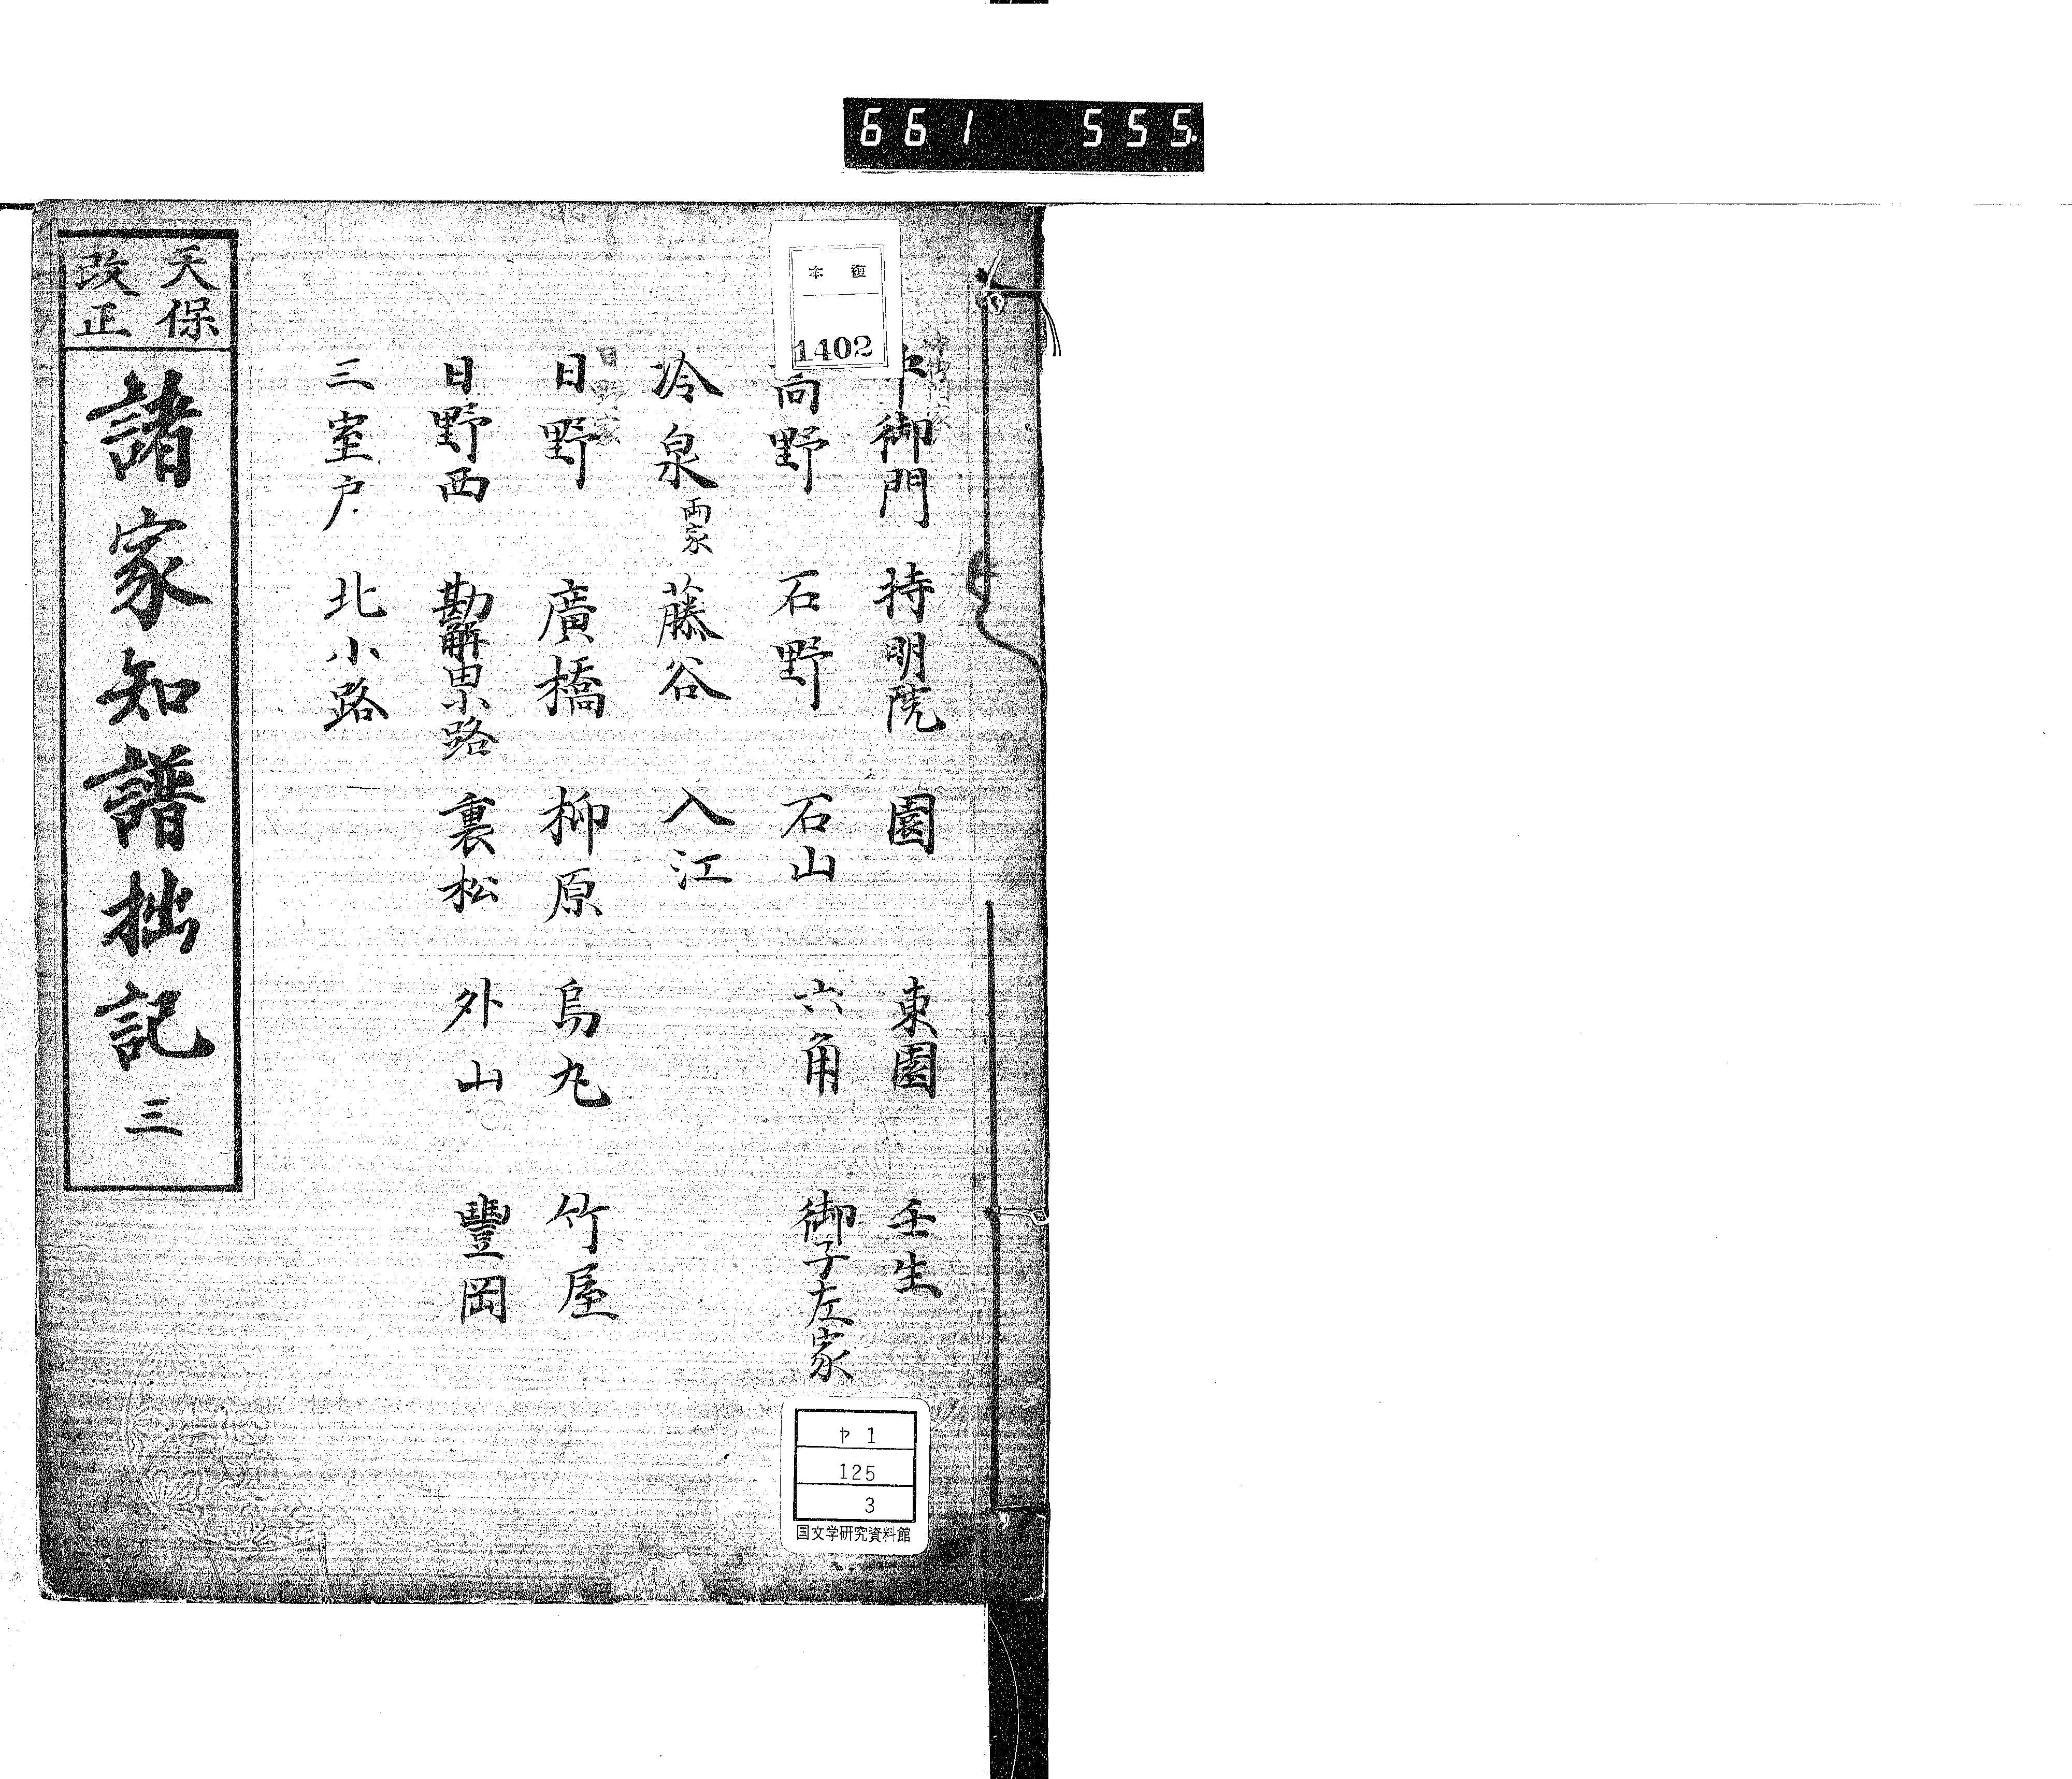 661 555.
複本
1402
御門 持明院 園 東園 壬生
高野 石野 石山 六角 御子左家
冷泉両家 藤谷 入江
日野家
日野 廣橋 柳原 烏丸 竹屋
日野西 勘解由小路 裏松 外山 豐岡
三室戸 北小路
天保
改正
諸家知譜拙記 三
ヤ1
125
3
国文学研究資料館